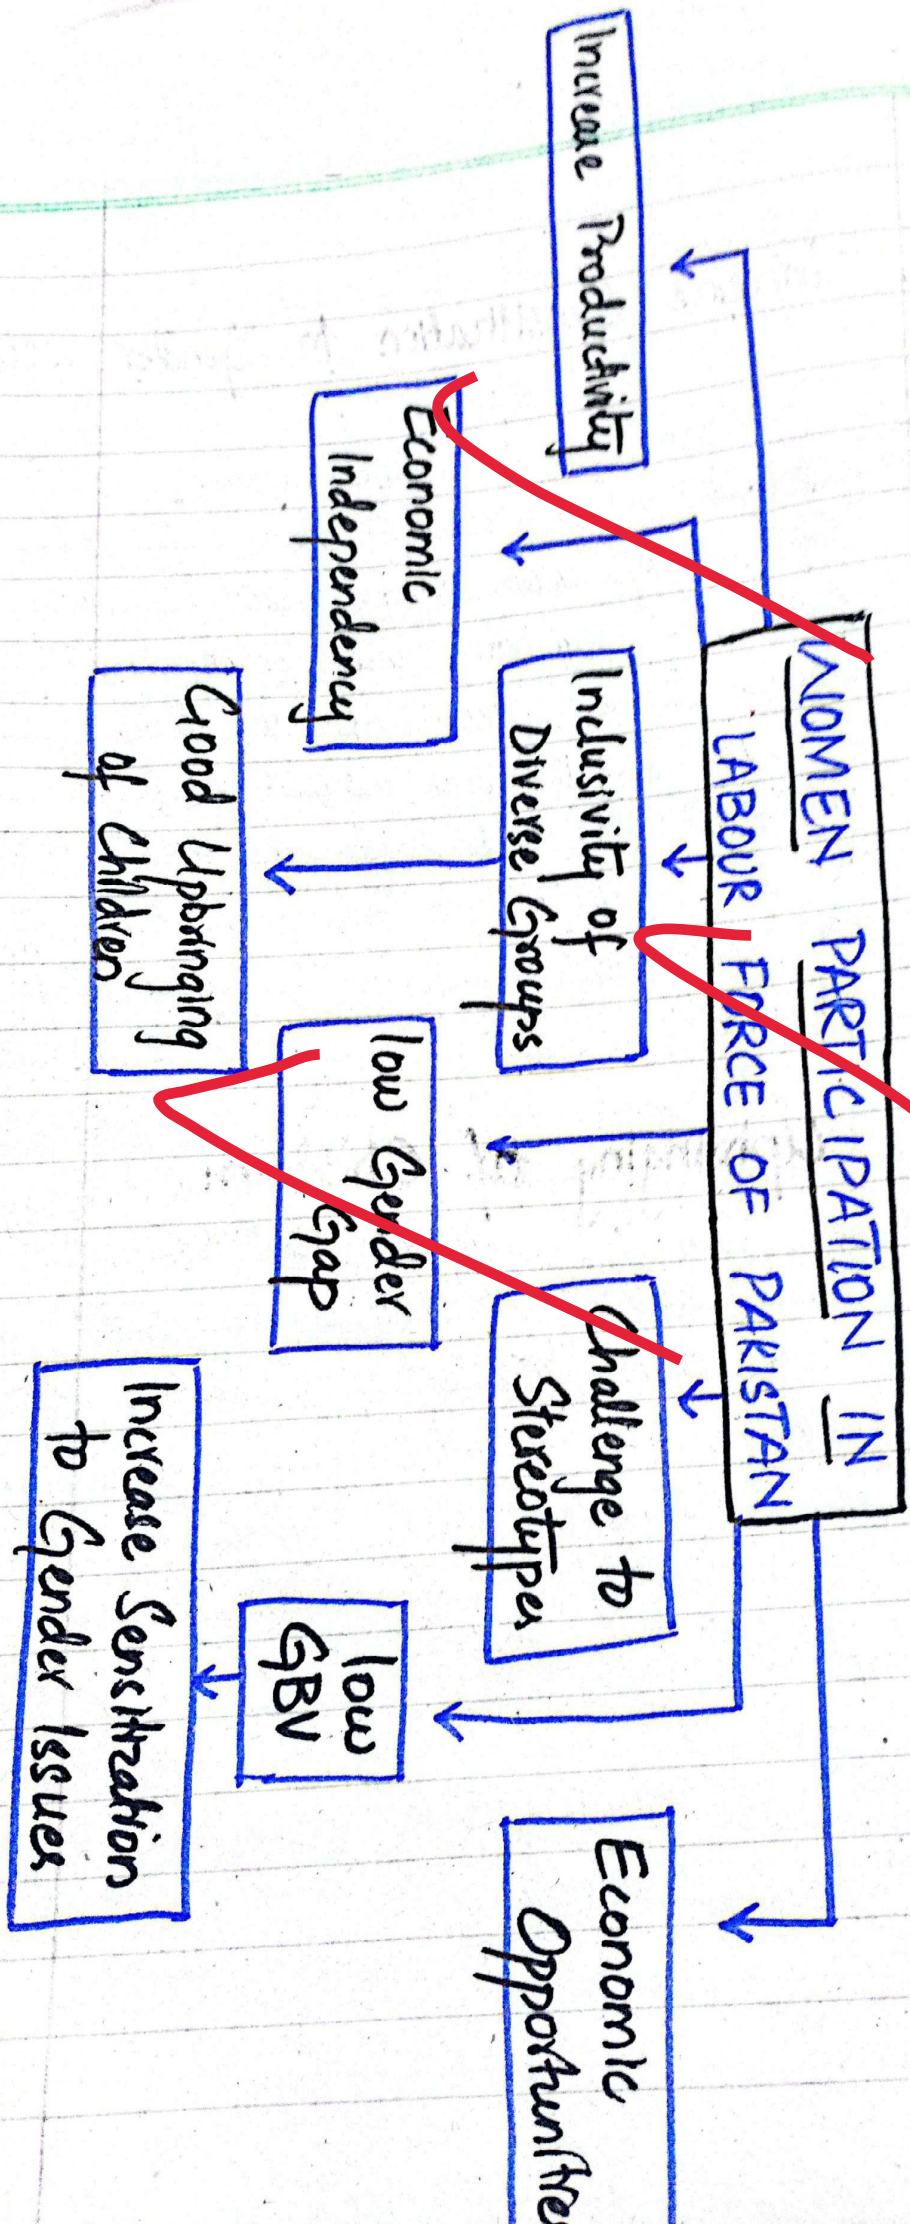 WOMEN PARTICIPATION IN
LABOUR FORCE OF PAKISTAN
Increase Productivity
Economic
Independency
Inclusivity of
Diverse Groups
Good Upbringing
of Children
low Gender
Gap
Challenge to
Stereotypes
low
GBV
Increase Sensitization
to Gender Issues
Economic
Opportunities